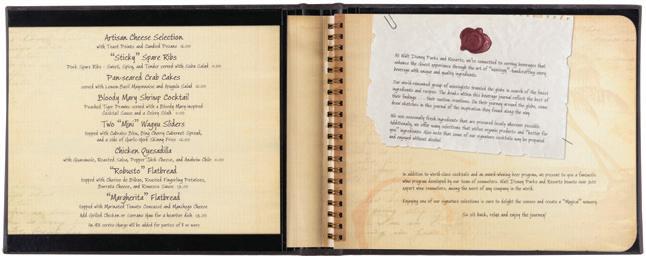 Artisan Cheese Selection
with Toast Points and Candied Pecans
"Sticky" Spare Ribs
Pork Spare Ribs - Sweet, Spicy, and Tender served with Soba Salad
Pan-seared Crab Cakes
served with Lemon Basil Mayonnaise and Arugula Salad
Bloody Mary Shrimp Cocktail
Poached Tiger Prawns served with a Bloody Mary-inspired
Cocktail Sauce and a Celery Stalk
Two "Mini" Wagyu Sliders
topped with Cabrales Bleu, Bing Cherry Cabernet Spread,
and a side of Garlic-Herb Skinny Fries
Chicken Quesadilla
with Guacamole, Roasted Salsa, Pepper Jack Cheese, and Anaheim Chile
"Robusto" Flatbread
topped with Chorizo de Bilbao, Roasted Fingerling Potatoes,
Burrata Cheese, and Romesco Sauce
"Margherita" Flatbread
topped with Marinated Tomato Concassé and Manchego Cheese
Add Grilled Chicken or Serrano Ham for a heartier dish
An 18% service charge will be added for parties of 8 or more
At Walt Disney Parks and Resorts, we're committed to serving beverages that
enhance the guest experience through the art of "mixology" handcrafting every
beverage with unique and quality ingredients.
Our world-renowned group of mixologists traveled the globe in search of the finest
ingredients and recipes. The drinks within this beverage journal reflect the best of
their findings
drew sketches in their journal of the inspiration they found along the way.
We use seasonally fresh ingredients that are procured locally wherever possible.
Additionally, we offer many selections that utilize organic products and "better for
you" ingredients. Also note that some of our signature cocktails may be prepared
and enjoyed without alcohol.
In addition to world-class cocktails and an award-winning beer program, we present to you a fantastic
wine program developed by our team of sommeliers. Walt Disney Parks and Resorts boasts over 300
expert wine sommeliers, among the most of any company in the world.
Enjoying one of our signature selections is sure to delight the senses and create a "Magical" memory.
So sit back, relax and enjoy the journey!